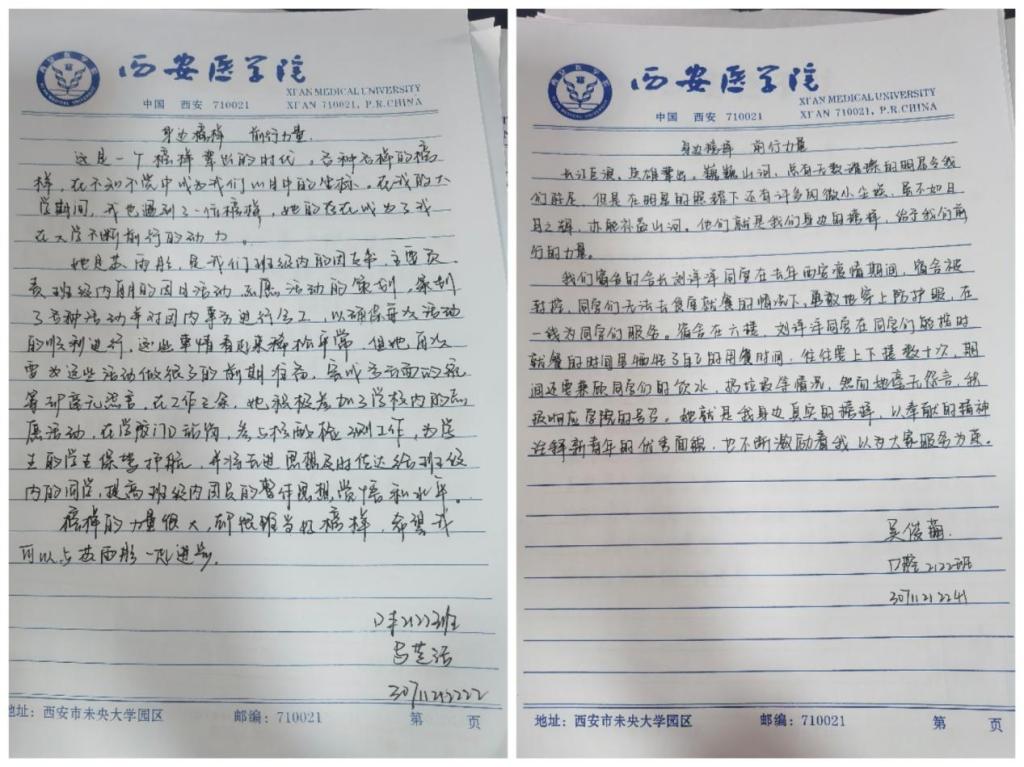 西安医学院
XI'AN MEDICAL UNIVERSITY
中国 西安 710021
XI'AN 710021, P.R.CHINA
身边榜样 前行力量
这是一个榜样辈出的时代，各种各样的榜
样，在不知不觉中成为我们心目中的坐标。在我的大
学期间，我也遇到了一位榜样，她的存在成为了我
在大学不断前行的动力。
她是苏雨彤，是我们班级内的团支书，主要负
责班级内部的团日活动 志愿活动的策划，策划
了各种活动并对团内事务进行分工，以确保每次活动
的顺利进行，这些事情看起来稀松平常，但她
要为这些活动做很多的前期准备，完成各方面的统
筹却毫无怨言，在工作之余，她积极参加了学校内的志
愿活动，在学校门口站岗，参与核酸检测工作，为学
生的学生保驾护航，并将先进思想及时传达给班级
内的同学，提高班级内团员的整体思想觉悟和水平。
榜样的力量很大，却很难当好榜样，希望我
可以与苏雨彤一起进步。
2122班
3071121222
地址：西安市未央大学园区 邮编：710021 第 页
西安医学院
XI'AN MEDICAL UNIVERSITY
中国 西安 710021
XI'AN 710021, P.R.CHINA
身边榜样 前行力量
长江巨浪，英雄辈出，巍巍山河，总有无数璀璨的明星令我
们驻足，但是在明星的照耀下还有许多的微小尘埃，虽不如日
月之辉，亦能补益山河。他们就是我们身边的榜样，给予我们前
行的力量。
我们宿舍的舍长刘洋洋同学在去年西安疫情期间，宿舍被
封控，同学们无法去食堂就餐的情况下，勇敢地穿上防护服，在
一线为同学们服务。宿舍在六楼，刘洋洋同学在同学们能按时
就餐的时间里牺牲了自己的用餐时间，往往要上下楼数十次，期
间还要兼顾同学们的饮水，扔垃圾等情况，然而她毫无怨言，积
极响应学院的号召。她就是我身边真实的榜样，以奉献的精神
诠释新青年的优秀面貌，也不断激励着我以为大家服务为荣。
吴俊
口腔2122班
地址：西安市未央大学园区 邮编：710021 第 页